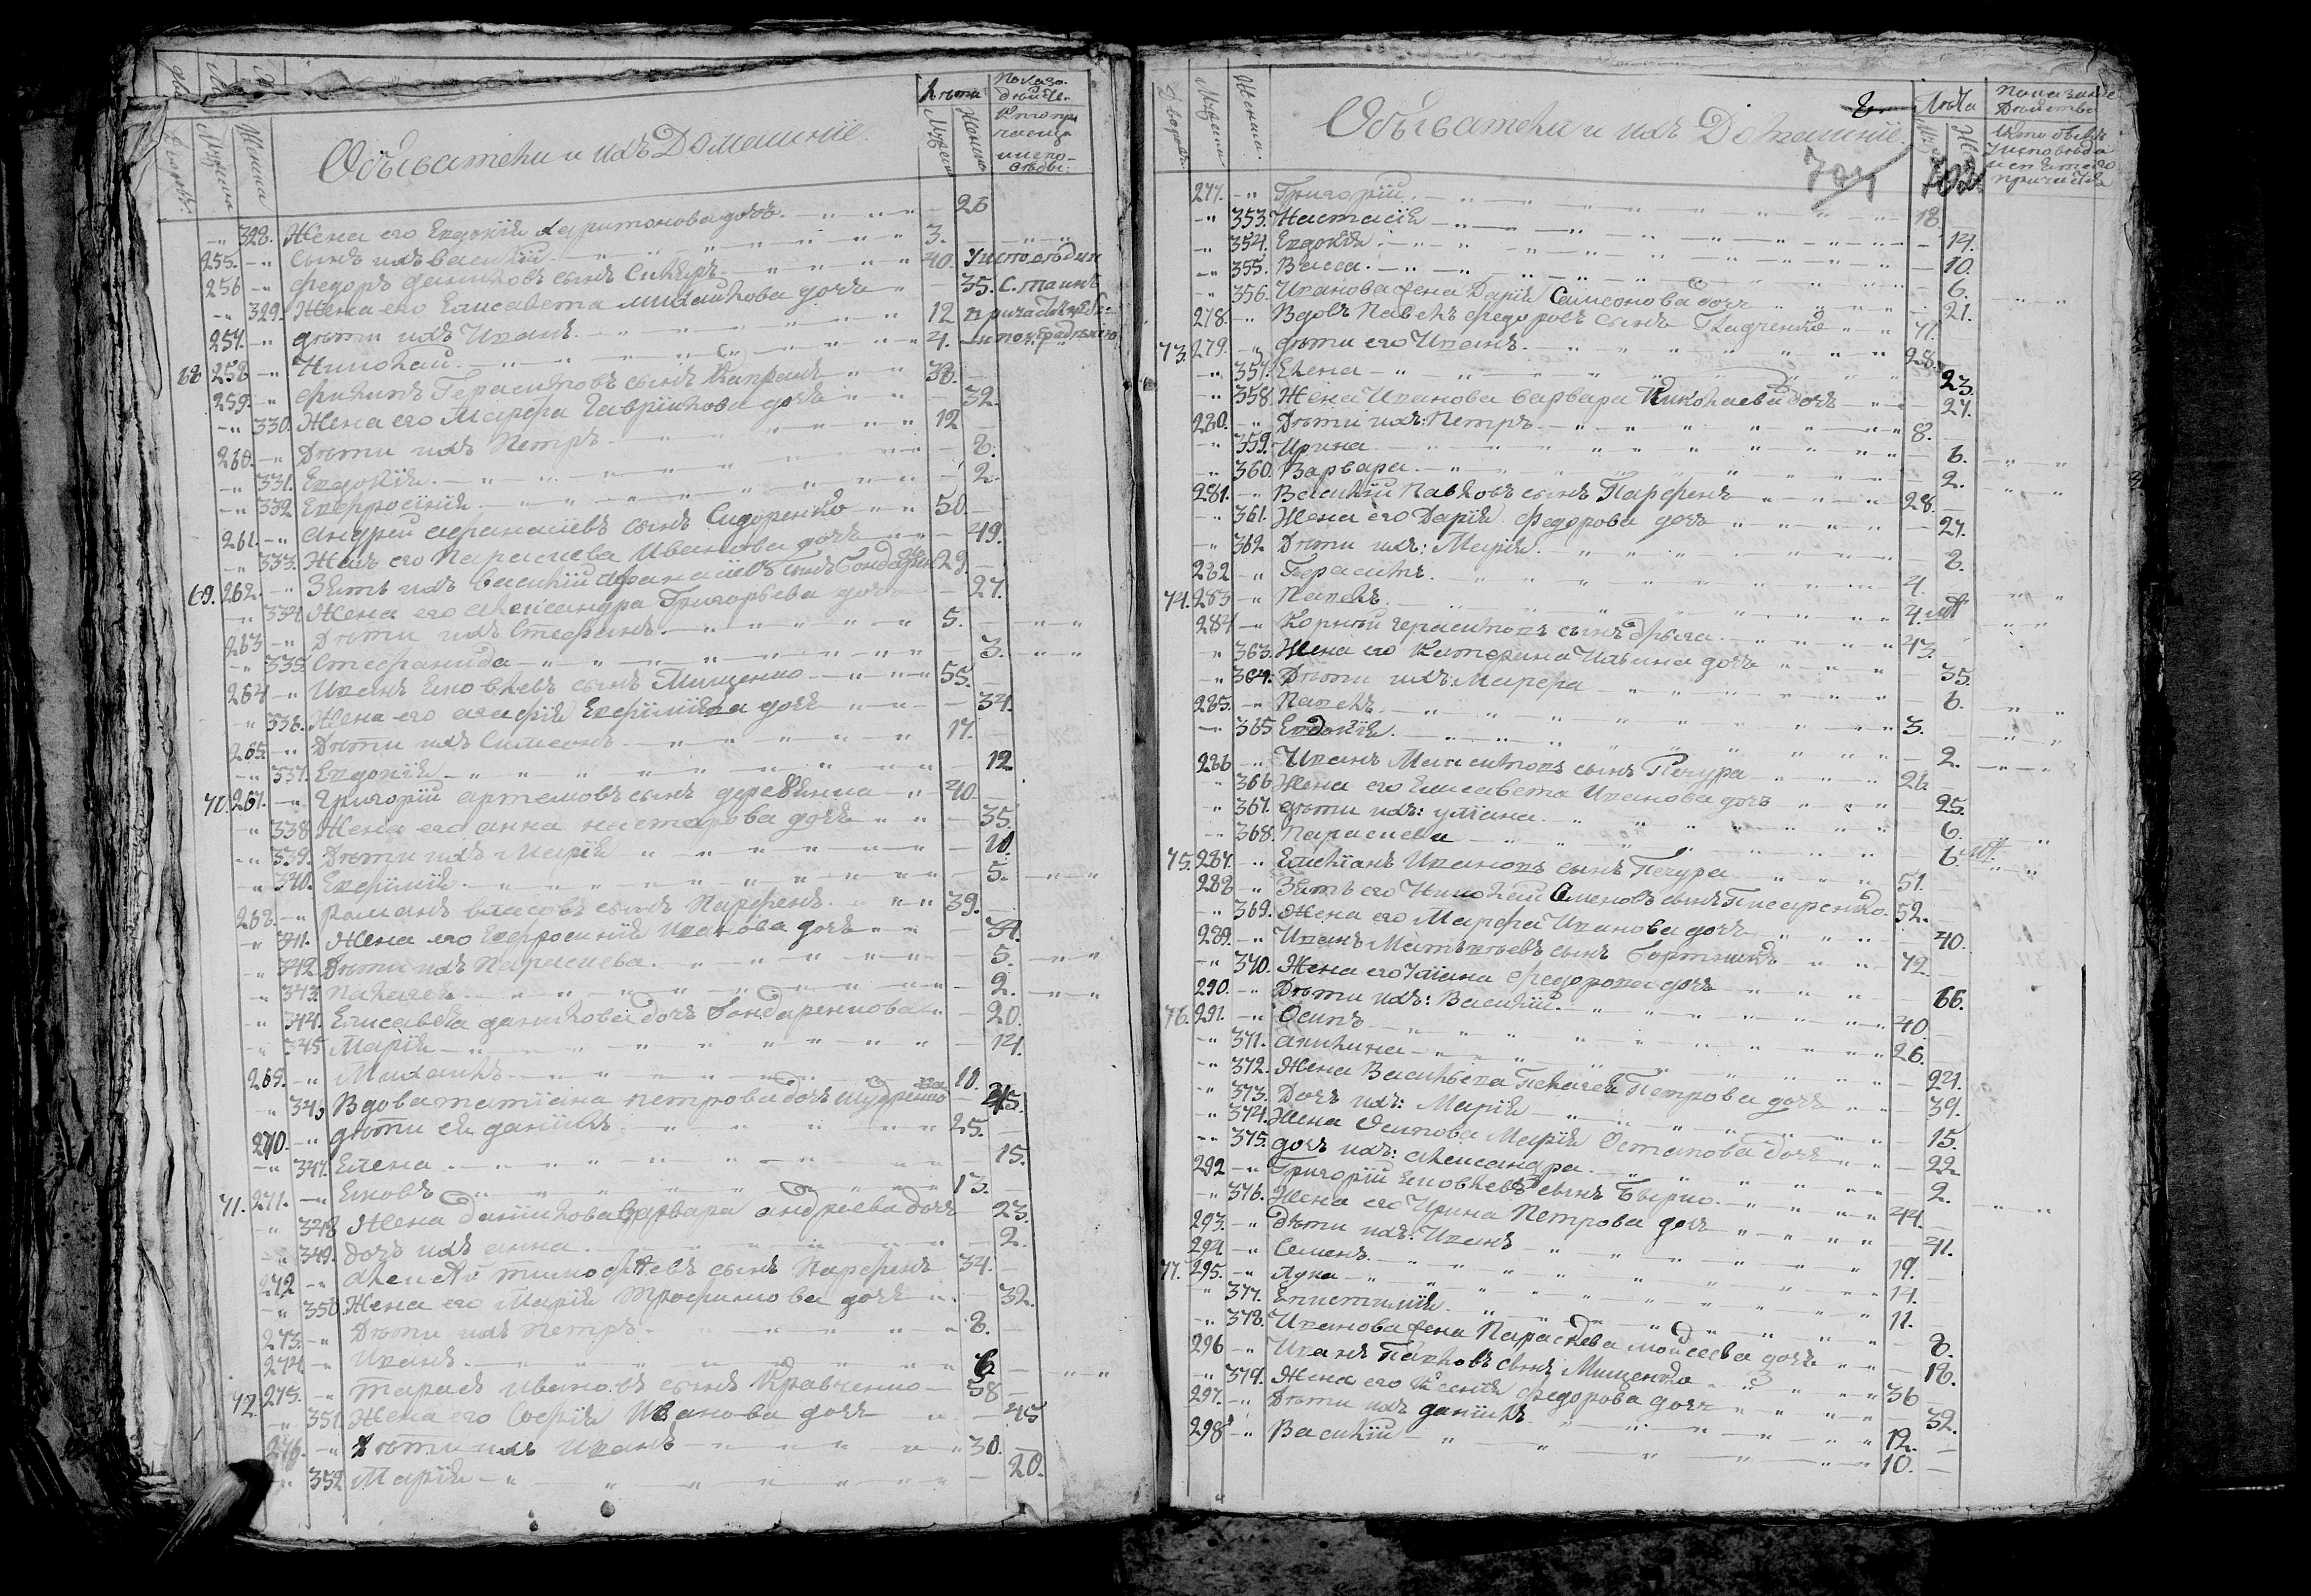 Дворовъ. Мужеска Женска Обыватели и ихъ Домашніе. Лѣта Мужеска Женска
328. Жена его Евдокія Харитонова дочь 26
255. Сынъ ихъ Василій 3.
256 Федоръ Даниловъ сынъ 40.
329. Жена его Елисавета Михайлова дочь 35.
257. Дѣти ихъ Иванъ 12
68 258 Николай 4.
259. Филипъ Герасимовъ сынъ 38.
330. Жена его Марфа Гавріилова дочь 32.
260. Дѣти ихъ Петръ 12
331. Евдокія 8.
332 Евфросинія 2.
261. Андрей Афанасіевъ сынъ Сидоренко 50.
333. Жена его Параскева Иванова дочь 49.
69. 262. Зять ихъ Василій Афанасіевъ сынъ 29.
334 Жена его Александра Григорьева дочь 27.
263 Дѣти ихъ Стефанъ 5.
335. Стефанида 3.
264 Иванъ Яковлевъ сынъ Мищенко 55.
336. Жена его Агафія Евфиміева дочь 34.
265. Дѣти ихъ Симеонъ 17.
337. Евдокія 12
70. 267. Григорій Артемовъ сынъ 40
338 Жена его Анна дочь 35.
339. Дѣти ихъ Марія 10.
340. Евфимія 5.
268. Романъ Власовъ сынъ Парфенъ 39.
341. Жена его Евфросинія Иванова дочь 34.
342 Дѣти ихъ Параскева 5.
343. Пелагея 2.
344. Елисавета Данилова дочь Бондаренкова 20.
345 Марія 14.
269. Михаилъ 10.
346 Вдова Татіана Петрова дочь 45.
270. Дѣти ея Даніилъ 25.
347. Елена 15.
71. 271. Яковъ 13.
348 Жена Даніилова Варвара Андреева дочь 23.
349. Дочь ихъ Анна 2.
272 Алексѣй Тимофѣевъ сынъ Парфенъ 34.
350. Жена его Марія Трофимова дочь 32.
273. Дѣти ихъ Петръ 8.
274 Иванъ 6
72. 275. Тарасъ Ивановъ сынъ Кравченко 58
351. Жена его Софія Иванова дочь 45
276. Дѣти ихъ Иванъ 30.
352 Марія 20.
Дворовъ. Мужеска Женска. Обыватели и ихъ Домашніе. Лѣта
704 702
277. Григорій 18.
353. Настасія 14.
354. Евдокія 10.
355. Васса 6.
356. Иванова жена Дарія Самсонова дочь 21.
278. Вдовъ Павелъ Федоровъ сынъ 71.
73. 279. Дѣти его Иванъ 28.
357. Елена 23.
358. Жена Иванова Варвара Николаева дочь 27.
280. Дѣти ихъ: Петръ 8.
359. Ирина 6.
360. Варвара 2.
281. Василій Павловъ сынъ Парфенъ 28.
361. Жена его Дарія Федорова дочь 27.
362 Дѣти ихъ: Марія 8.
282 Герасимъ 4.
74. 283 Павелъ 4.
284 Корнѣй Герасимовъ сынъ 43.
363. Жена его Катерина Ильина дочь 35.
364. Дѣти ихъ: Марфа 6.
285. Павелъ 3.
365 Евдокія 2.
286 Иванъ Максимовъ сынъ Печура 26.
366 Жена его Елисавета Иванова дочь 25.
367. Дѣти ихъ: Уліана 6.
368. Параскева 6.
75. 287. Емеліанъ Ивановъ сынъ Печура 51.
288 Зять его Николай Семеновъ сынъ Писаренко 52.
369. Жена его Марфа Иванова дочь 40.
289. Иванъ Матвѣевъ сынъ Бортникъ 72.
370. Жена его Уліана Федорова дочь 66.
290. Дѣти ихъ: Василій 40
76. 291. Осипъ 26.
371. Акилина 24.
372. Жена Васильева Пелагея Петрова дочь 39.
373. Дочь ихъ: Марія 15.
374. Жена Осипова Марія Остапова дочь 22
375. Дочь ихъ: Александра 2.
292 Григорій Яковлевъ сынъ 44.
376. Жена его Ирина Петрова дочь 41.
293. Дѣти ихъ: Иванъ 19.
294. Семенъ 14.
77. 295. Лука 11.
377. Епистимія 8.
378. Иванова жена Параскева Моисеева дочь 18.
296 Иванъ Павловъ сынъ Мищенко 36
379. Жена его Ксенія Федорова дочь 32.
297. Дѣти ихъ Даніилъ 12.
298 Василій 10.